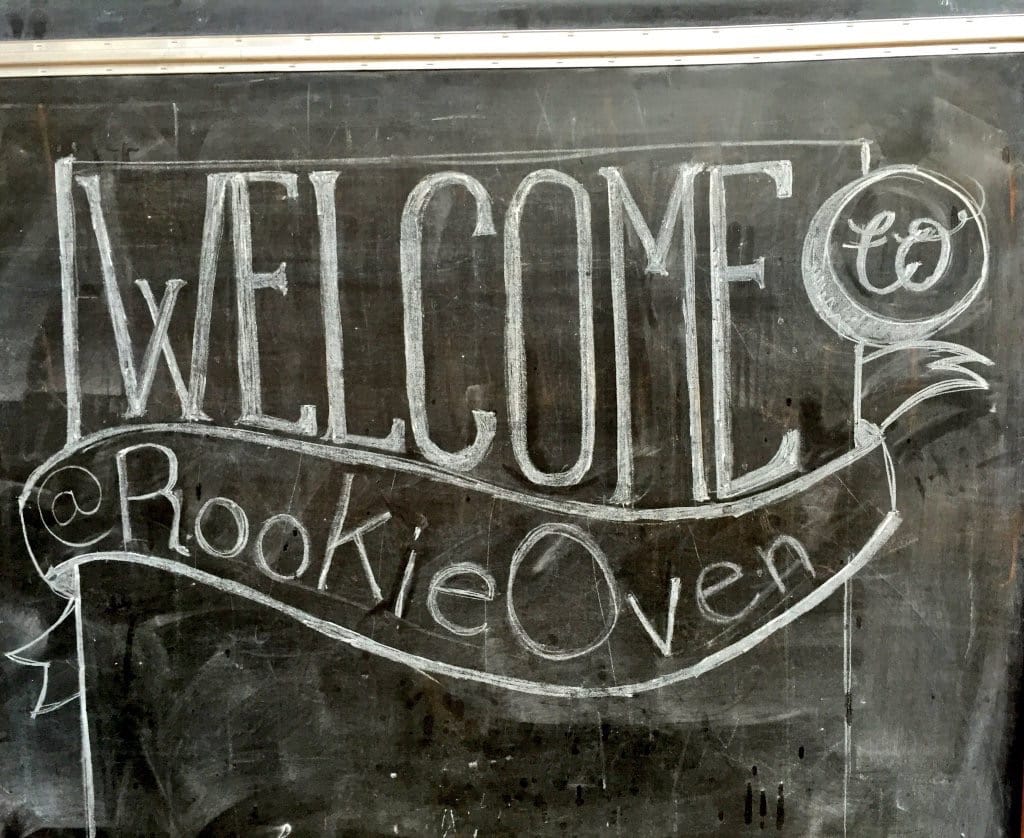 WELCOME to
@RookieOven